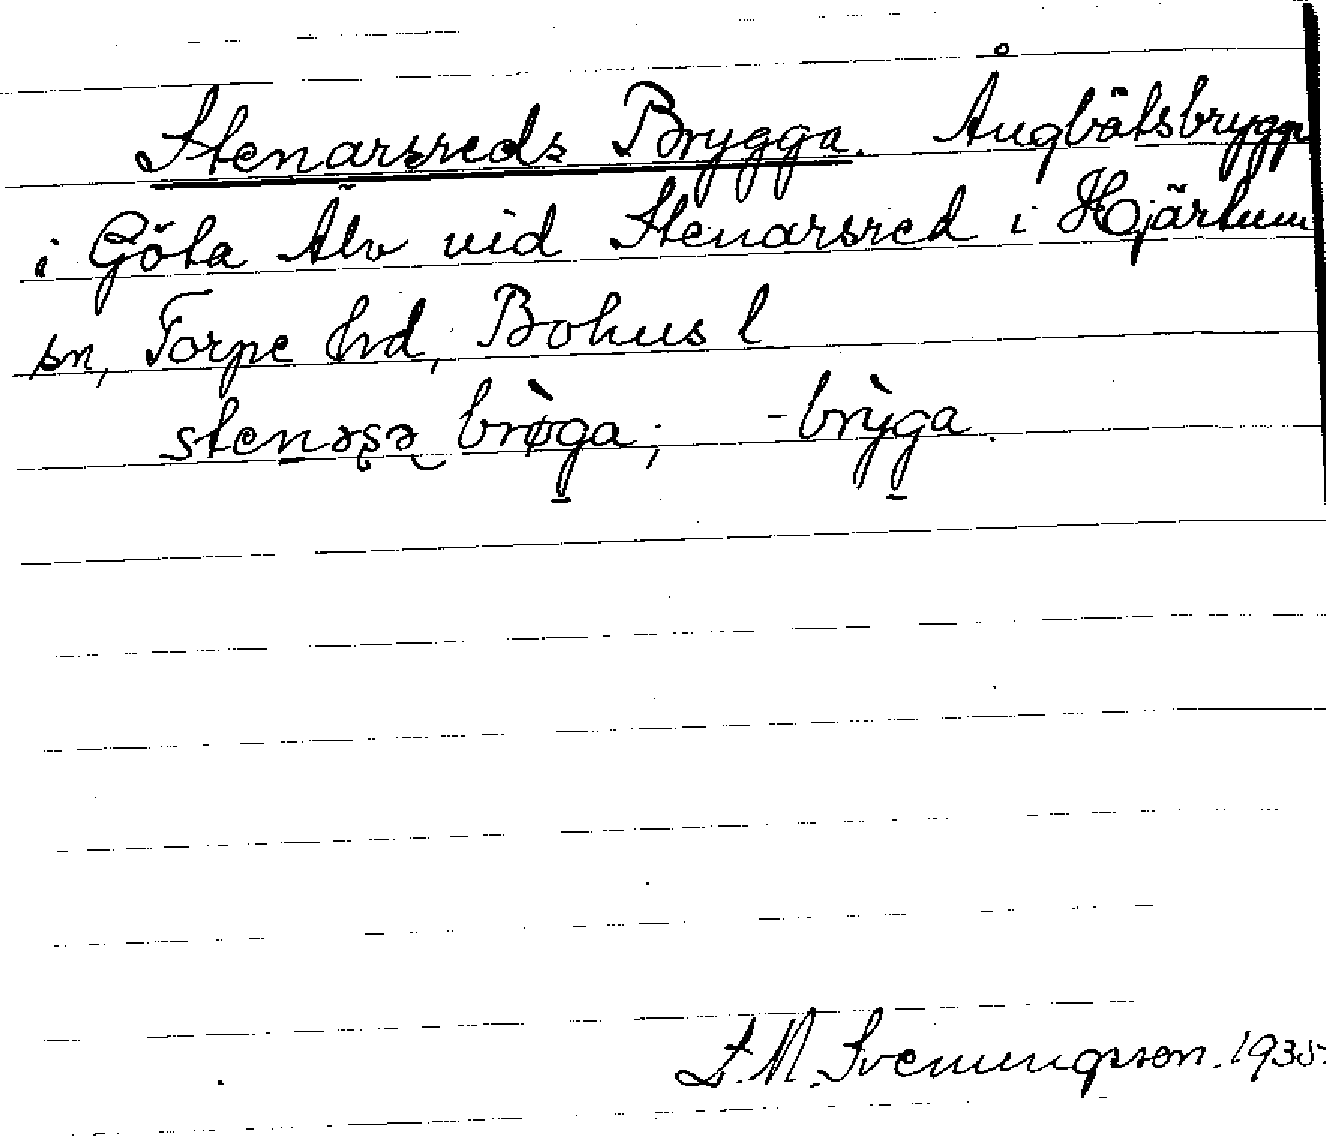 Stenarsreds Brygga. Ångbåtsbrygga
i Göta Älv vid Stenarsred i Hjärtum
sn, Torpe hd, Bohus l
stenəʂə brø̀ga; -brỳga.
S.M. Svenungsson. 1935.